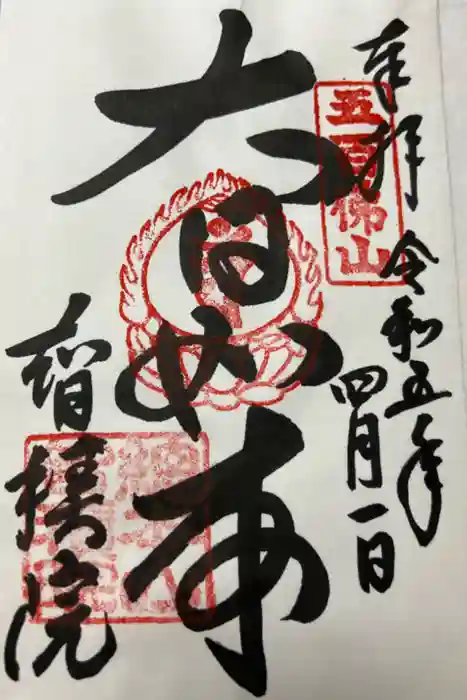 奉拝
令和五年
四月一日
五百佛山
大日如来
智積院